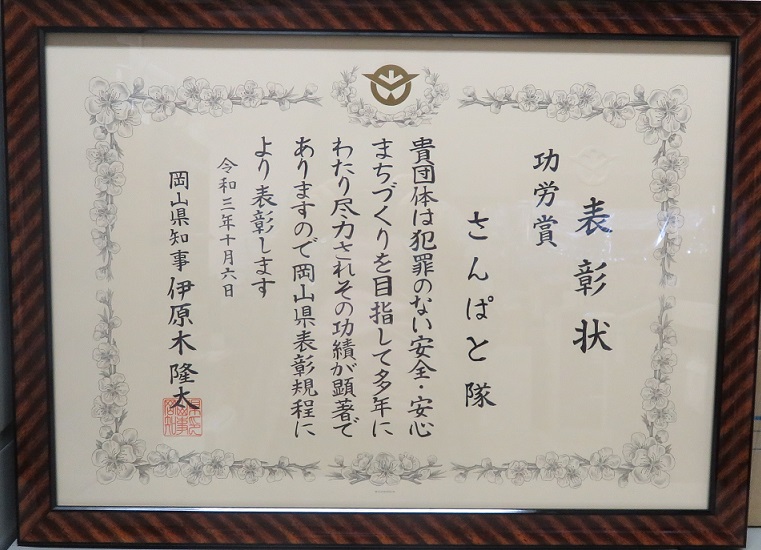 表彰状
功労賞
さんぱと隊
貴団体は犯罪のない安全・安心
まちづくりを目指して多年に
わたり尽力されその功績が顕著で
ありますので岡山県表彰規程に
より表彰します
令和三年十月六日
岡山県知事 伊原木隆太